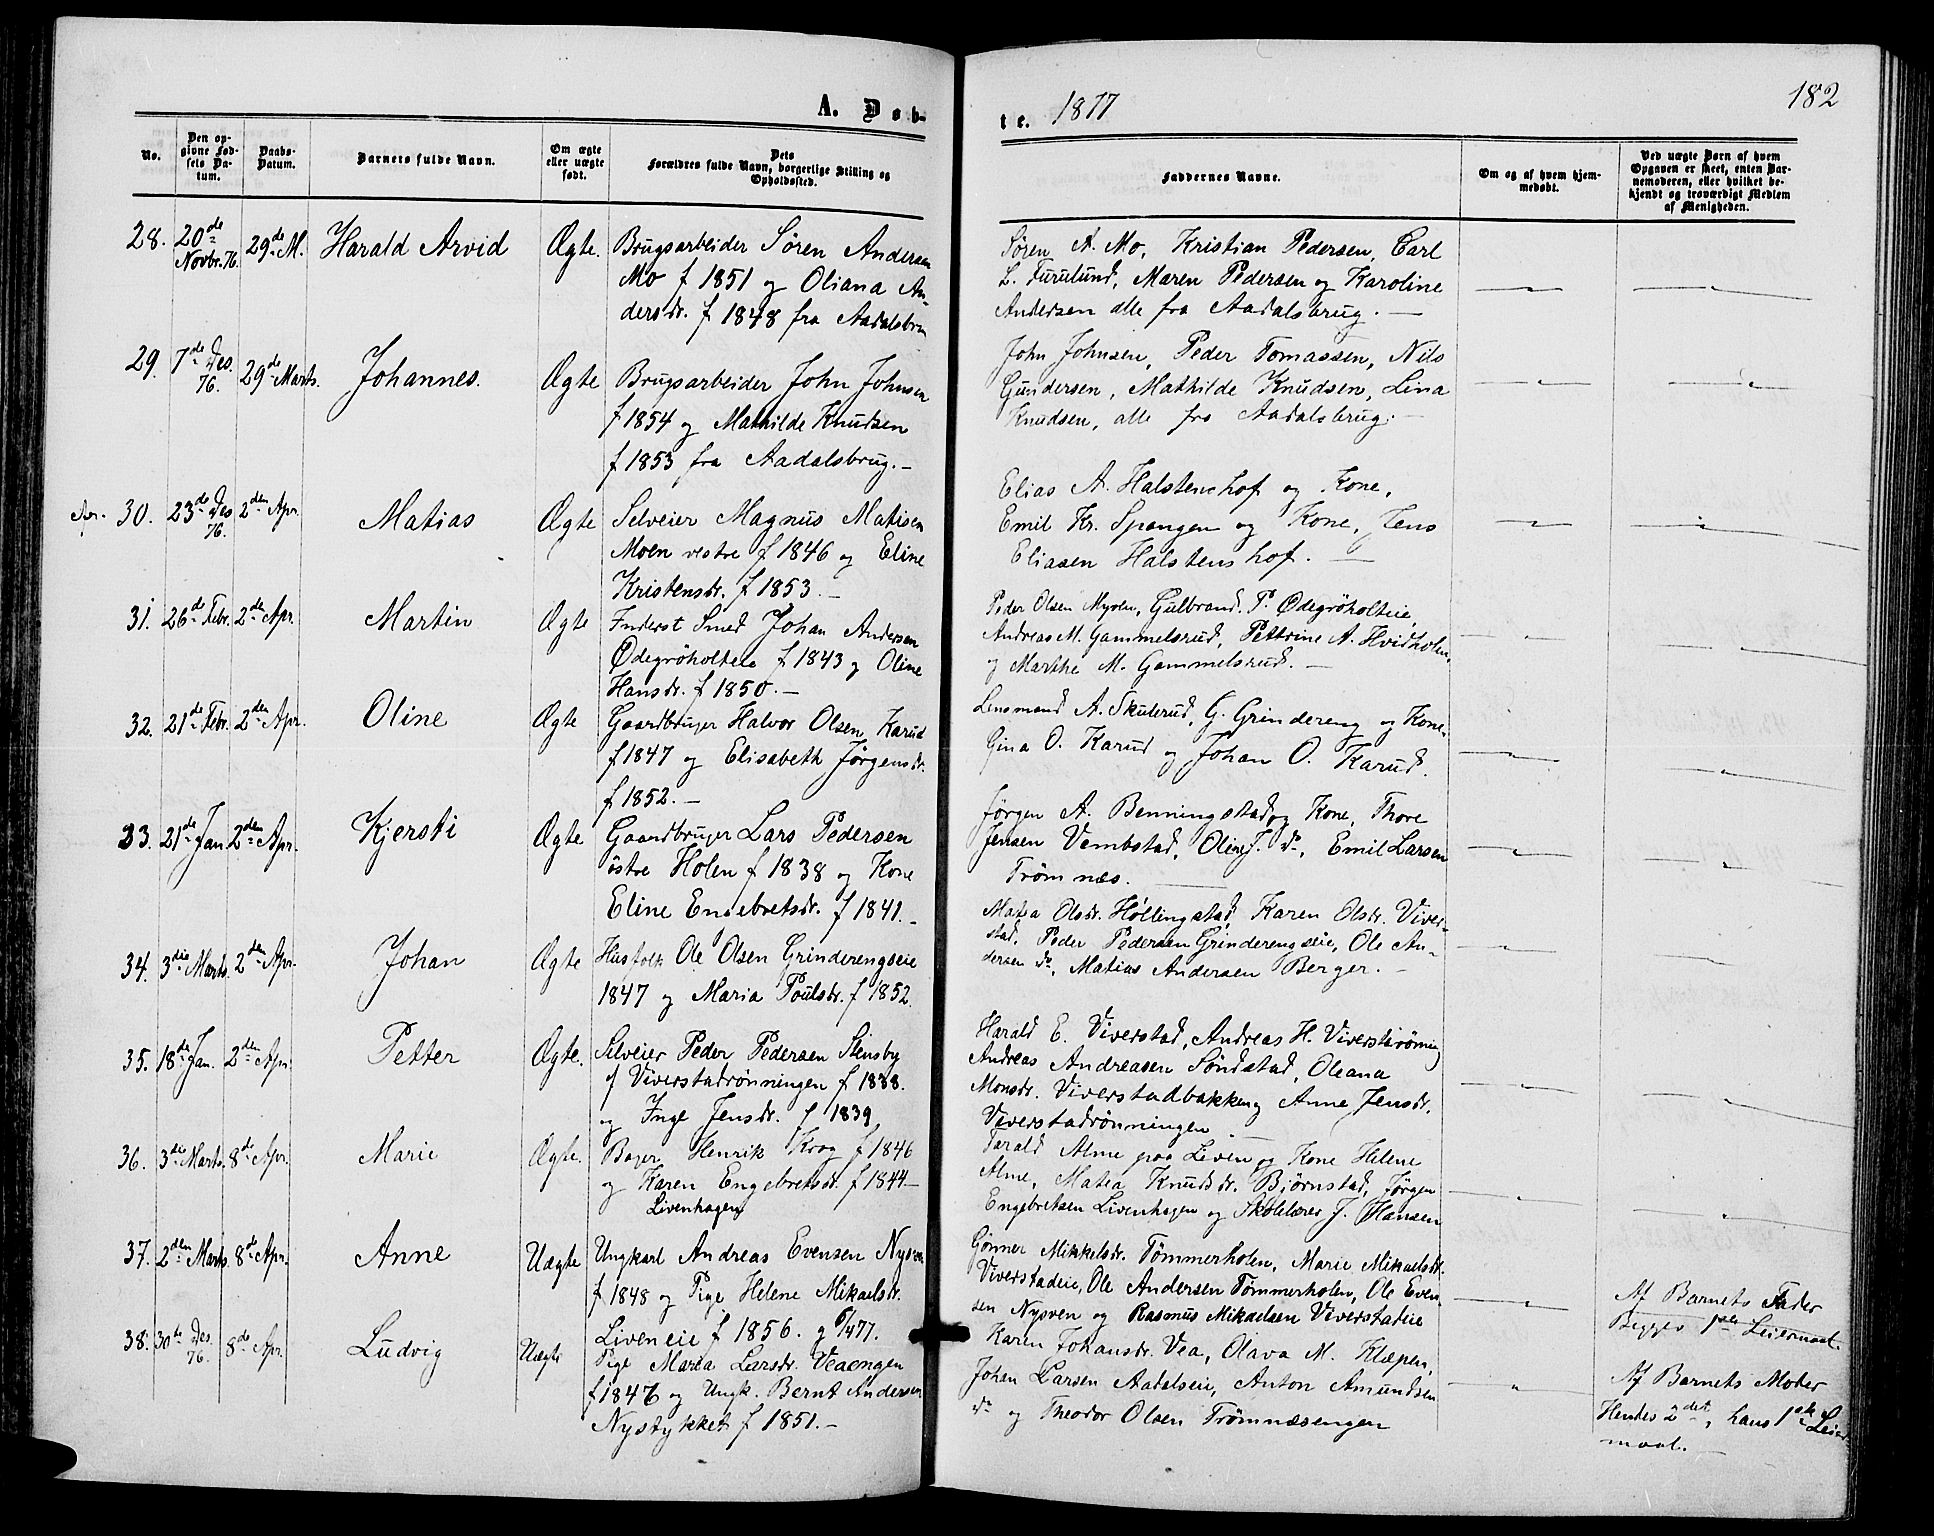 182
A. Døb-
te. 1877
No.
Den opgivne Fødsels Datum.
Daabs-Datum.
Barnets fulde Navn.
Om ægte eller uægte født.
Dets Forældres fulde Navn, borgerlige Stilling og Opholdssted.
Faddernes Navne.
Om og af hvem hjemmedøbt.
Ved uægte Børn af hvem Opgaven er skeet, enten Barnemoderen, eller hvilket bekjendt og troværdigt Medlem af Menigheden.
28. 20de Novbr. 76. 29de M. Harald Arvid Ægte. Brugsarbeider Søren Andersen
Mo f 1851 og Oliana An-
dersdr. f 1848 fra Aadalsbru
Søren A. Mo, Kristian Pedersen, Carl
L. Furulund, Maren Pedersen og Karoline
Andersen alle fra Aadalsbrug. —
29. 7de Des. 76. 29de Marts. Johannes. Ægte Brugsarbeider John Johnsen
f 1854 og Mathilde Knudsen
f 1853 fra Aadalsbrug. —
John Johnsen, Peder Tomassen, Nils
Gundersen, Mathilde Knudsen, Lina
Knudsen, alle fra Aadalsbrug. —
Apr. 30. 23de Des 76. 2den Apr. Matias Ægte Selveier Magnus Matisen
Moen vestre f 1846 og Eline
Kristensdr. f 1853. —
Elias A. Halstenshof og Kone,
Emil Kr. Spangen og Kone, Jens
Eliasen Halstenshof. —
31. 26de Febr. 2den Apr. Martin Ægte Inderst Smed Johan Andersen
Ødegrøholteie f 1843 og Oline
Hansdr. f 1850. —
Peder Olsen Myrlen, Gulbrand. P. Ødegrøholteie,
Andreas M. Gammelsrud, Pettrine A. Hvidholen,
og Marthe M. Gammelsrud. —
32. 21de Febr. 2den Apr. Oline Ægte Gaardbruger Halvor Olsen Karud
f 1847 og Elisabeth Jørgensdr.
f 1852. —
Lensmand A. Skulerud, G. Grindereng og Kone,
Gina O. Karud og Johan O. Karud.
33. 21de Jan 2den Apr. Kjersti Ægte Gaardbruger Lars Pedersen
østre Holen f 1838 og Kone
Eline Engebretsdr. f 1841. —
Jørgen A. Benningstad og Kone, Thore
Jensen Vembstad, Oline J. do, Emil Larsen
Trømnæs. —
34. 3die Marts. 2den Apr. Johan Ægte Husfolk Ole Olsen Grinderengseie
1847 og Maria Poulsdr. f 1852.
Matea Olsdr. Høllingstad, Karen Olsdr. Viver-
stad, Peder Pedersen Grinderengseie, Ole An-
dersen do, Matias Andersen Berger. —
35. 18de Jan. 2den Apr. Petter Ægte. Selveier Peder Pedersen Stensby
af Viverstadrønningen f 1838.
og Inge Jensdr. f 1839
Harald E. Viverstad, Andreas H. Viverstrøning
Andreas Andreasen Søndstad, Oleana
Monsdr. Viverstadbakken og Anne Jensdr.
Viverstadrønningen. —
36. 3die Marts. 8de Apr. Marie Ægte. Bager Henrik Krog f 1846
og Karen Engebretsdr. f 1844 —
Livenhagen
Tarald Alme paa Leven og Kone Helene
Alme, Matea Knudsdr. Bjørnstad, Jørgen
Engebretsen Livenhagen og Skolelærer J. Hansen
37. 2den Marts 8de Apr. Anne Uægte Ungkarl Andreas Evensen Nysven
f 1848 og Pige Helene Mikaelsdr.
Liveneie f 1856. og 6/4 77.
Gønner Mikkelsdr. Tømmerholen, Marie Mikaelsdr.
Viverstadeie, Ole Andersen Tømmerholen, Ole Even-
sen Nysven og Rasmus Mikaelsen Viverstadeie
Af Barnets Fader
Begges 1ste Leiermaal.
38. 30te Des. 76. 8de Apr. Ludvig Uægte Pige Marea Larsdr. Veaengen
f 1847 og Ungk. Bernt Andersen
Nystykket f 1851. —
Karen Johansdr. Vea, Olava M. Klæpen,
Johan Larsen Aadalseie, Anton Amundsen
do og Theodor Olsen Trømnæsengen
Af Barnets Moder
Hendes 2det, hans 1ste Leier-
maal. —